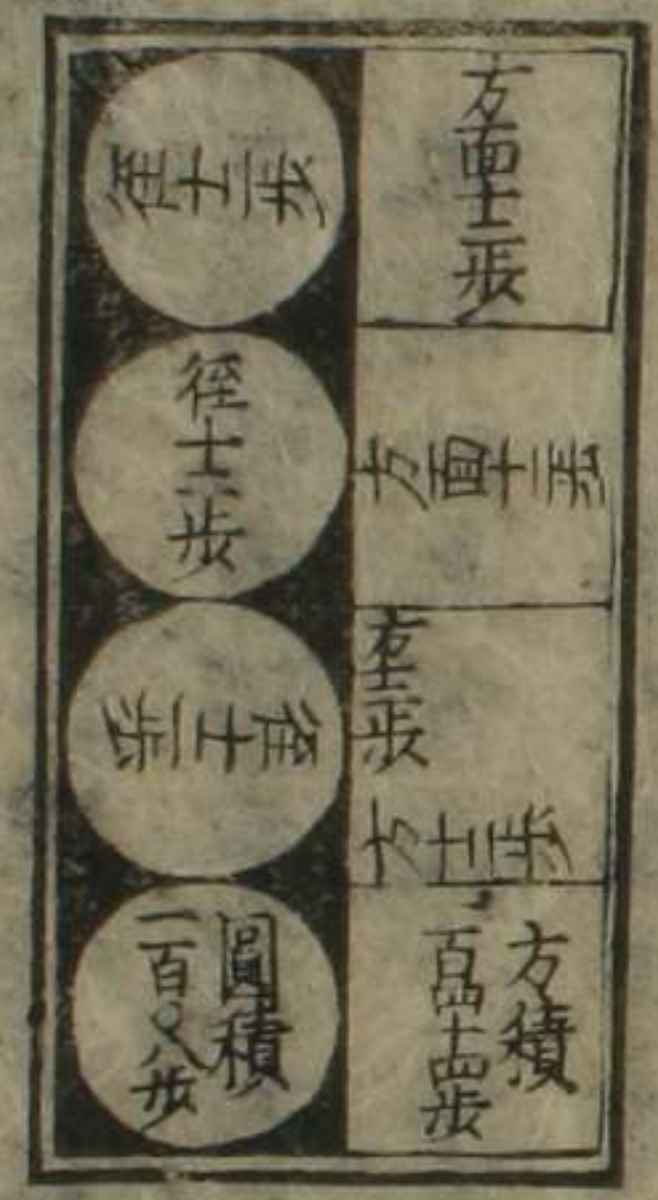 方面十二步
方面十二步
方十二步
方十二步
方積
百四十四步
徑十二步
徑十二步
徑十二步
圓積
一百〇八步